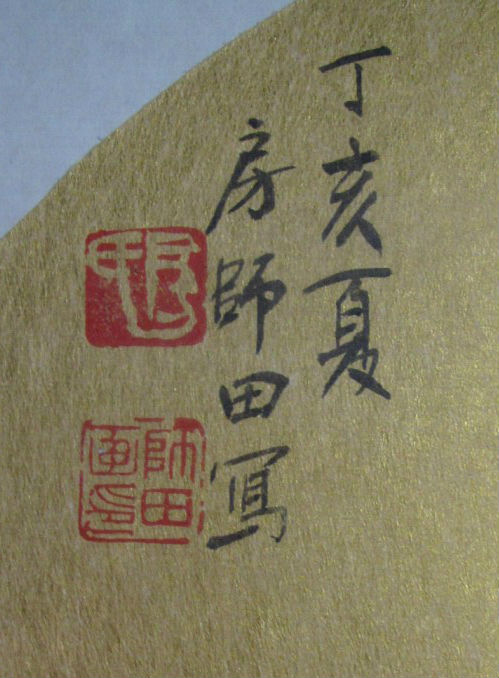 丁亥夏
房師田写
師田
画印